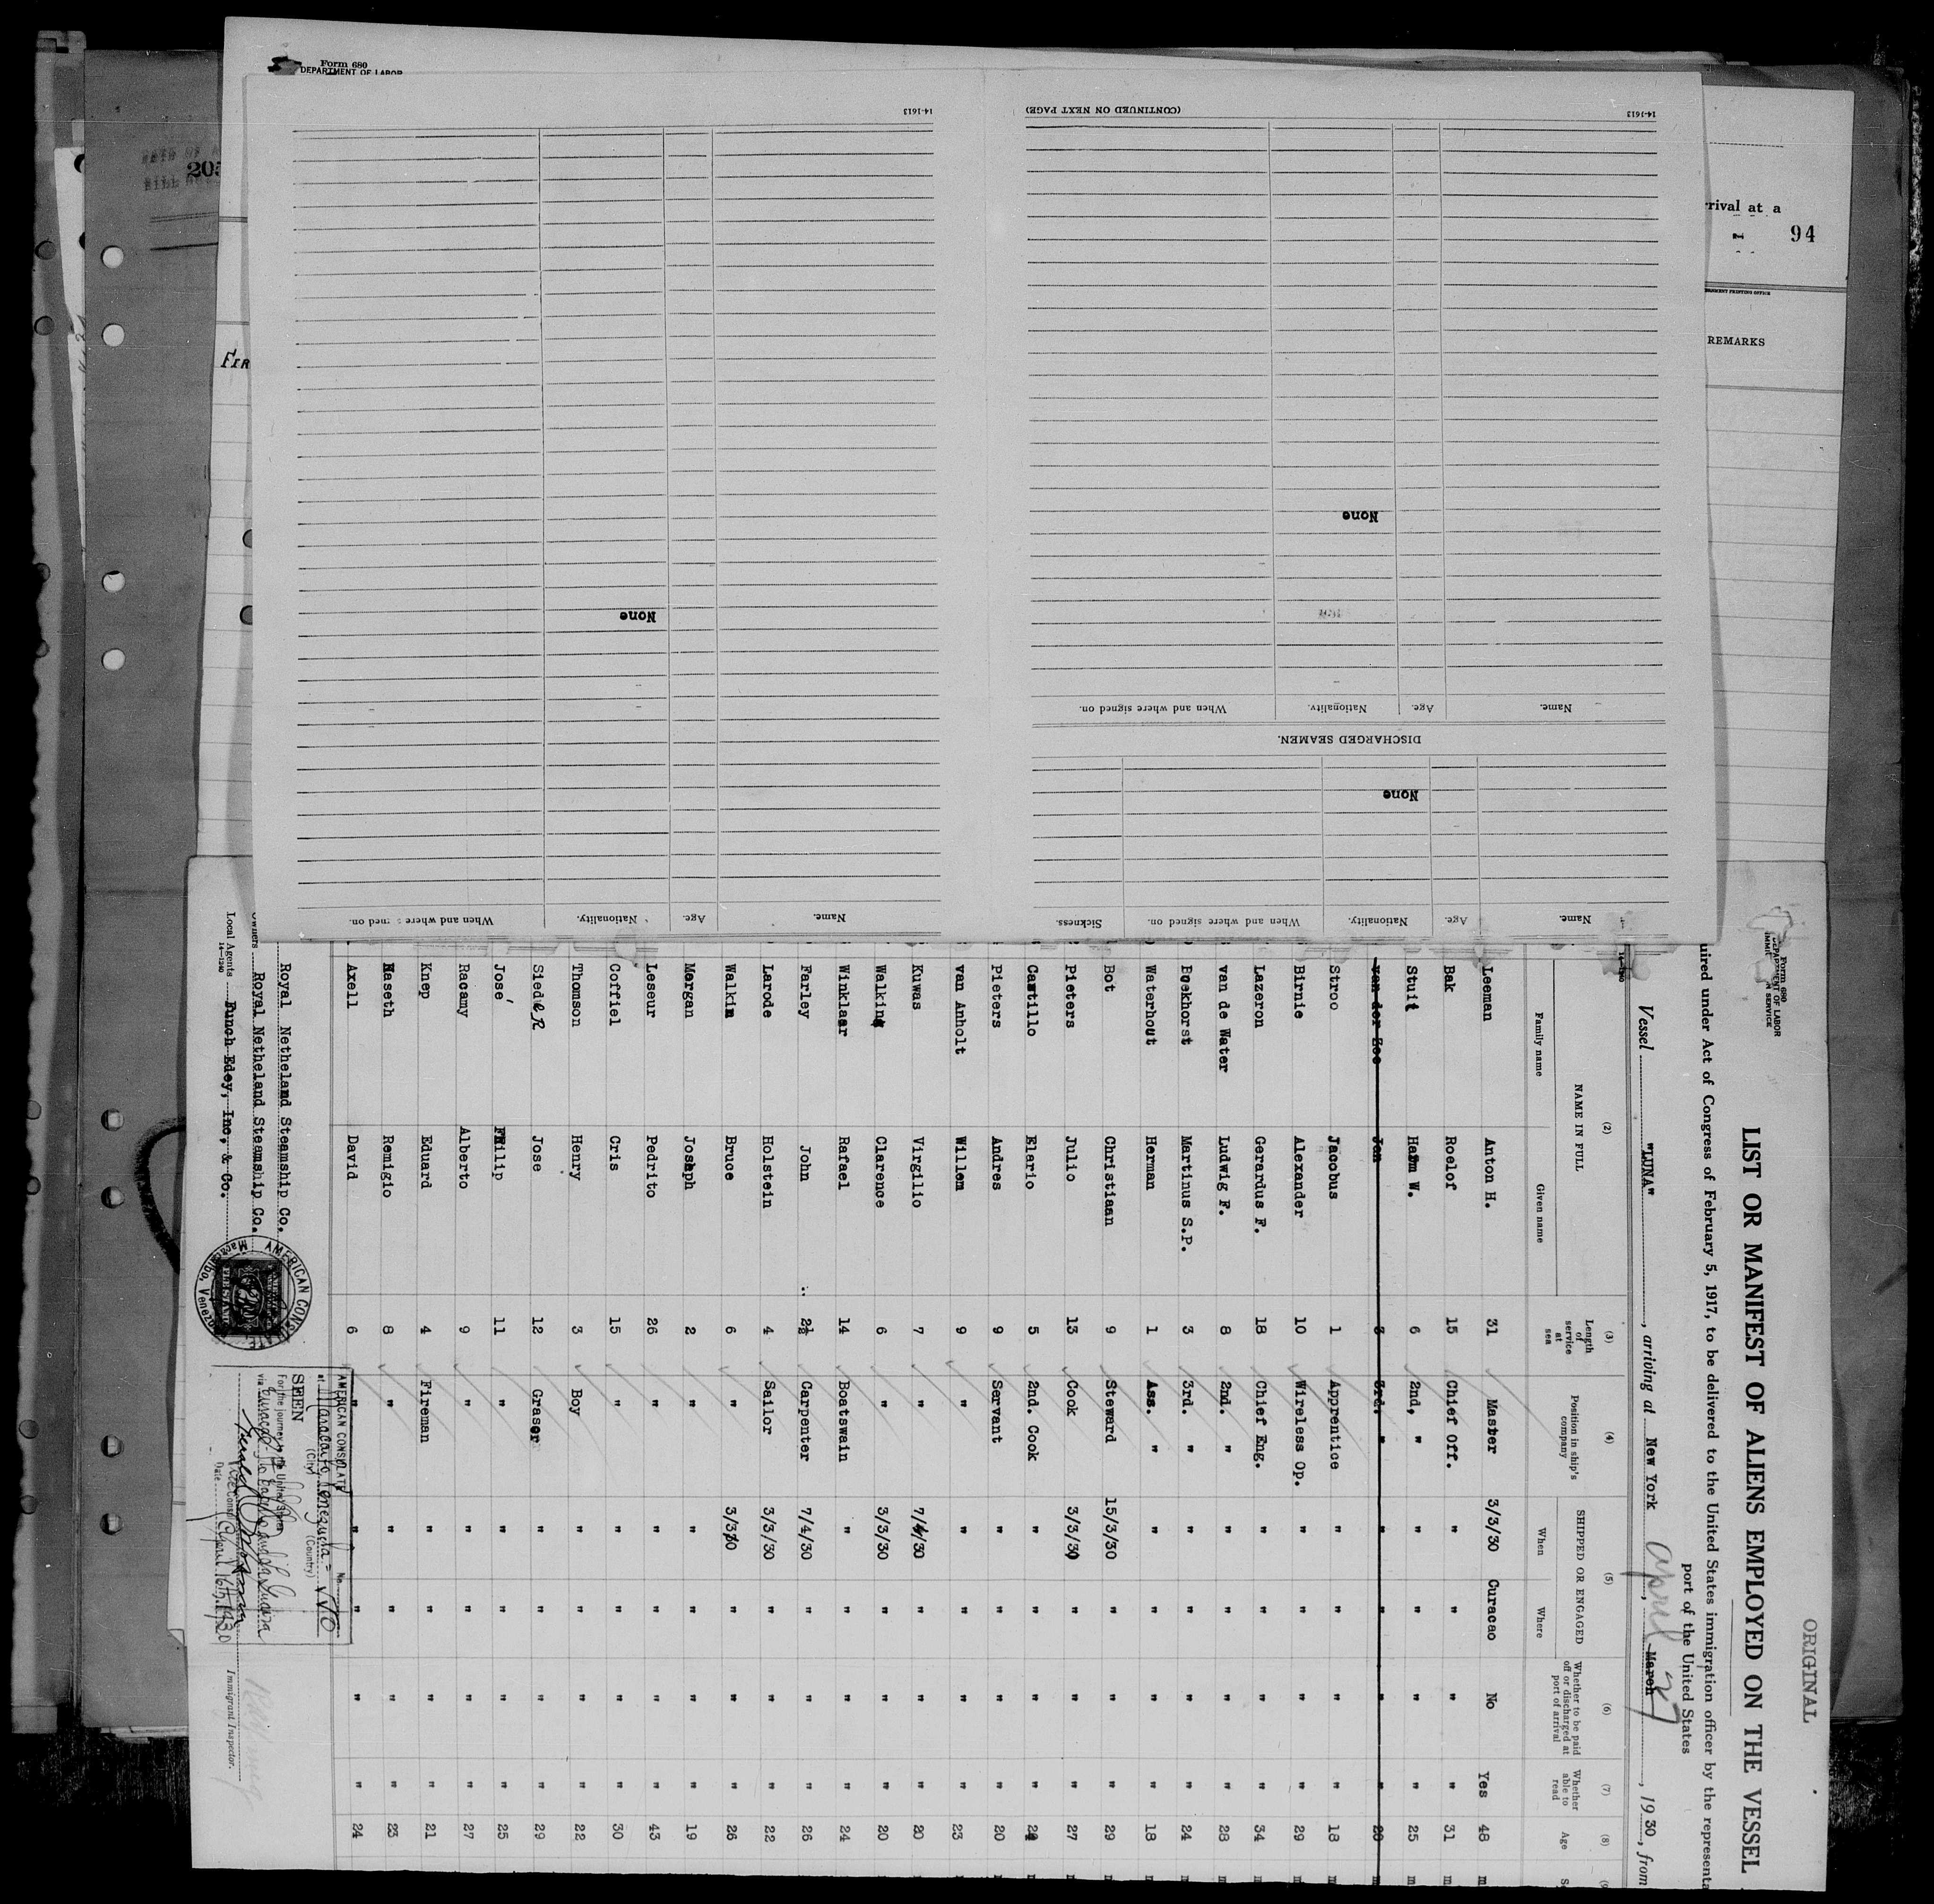 Form 680
DEPARTMENT OF LABOR
205
FIR
rrival at a
94
REMARKS
14-1613
None
Name.
Age.
Nationality.
When and where signed on.
(CONTINUED ON NEXT PAGE)
14-1613
None
Name.
Age.
Nationality.
When and where signed on.
DISCHARGED SEAMEN.
None
Name.
Age.
Nationality.
When and where signed on.
Sickness.
ORIGINAL
Form 680
LIST OR MANIFEST OF ALIENS EMPLOYED ON THE VESSEL
uired under Act of Congress of February 5, 1917, to be delivered to the United States immigration officer by the representa
port of the United States
Vessel "LUNA", arriving at New York April 27 March, 1930, from
(2) (3) (4) (5) (6) (7) (8)
NAME IN FULL Length of service at sea Position in ship's company SHIPPED OR ENGAGED Whether to be paid off or discharged at port of arrival Whether able to read Age
Family name Given name When Where
Leeman Anton H. 31 Master 3/3/30 Curacao No Yes 48 m
Bak Roelof 15 Chief Off. " " " " 31 m
Stuit Harm W. 6 2nd, " " " " " 25 m
van der Zee Jan 3 3rd. " " " " "
Stroo Jacobus 1 Apprentice " " " " 18
Birnie Alexander 10 Wireless Op. " " " " 29
Lazeron Gerardus F. 18 Chief Eng. " " " " 34
van de Water Ludwig F. 8 2nd. " " " " " 28
Beekhorst Martinus S.P. 3 3rd. " " " " " 24
Waterhout Herman 1 Ass. " " " " " 18
Bot Christiaan 9 Steward 15/3/30 " " " 29
Pieters Julio 13 Cook 3/3/30 " " " 27
Castillo Elario 5 2nd. Cook " " " "
Pieters Andres 9 Servant " " " " 20
van Anholt Willem 9 " " " " " 23
Kuwas Virgilio 7 " 7/4/30 " " " 20
Walking Clarence 6 " 3/3/30 " " " 20
Winklaar Rafael 14 Boatswain " " " " 24
Farley John 2½ Carpenter 7/4/30 " " " 26
Larode Holstein 4 Sailor 3/3/30 " " " 22
Walkin Bruce 6 " 3/3/30 " " " 26
Morgan Joseph 2 " " " " " 19
Leseur Pedrito 26 " " " " " 43
Coffiel Cris 15 " " " " " 30
Thomson Henry 3 Boy " " " " 22
Sieder Jose 12 Graser " " " " 29
Jose' Philip 11 " " " " " 25
Racamy Alberto 9 " " " " " 27
Knep Eduard 4 Fireman " " " " 21
Maseth Remigio 8 " " " " " 23
Axell David 6 " " " " " 24
Royal Netheland Steamship Co.
Owners Royal Netheland Steamship Co.
Local Agents Funch Edey, Inc, & Co.
14-1240
Immigrant Inspector.
AMERICAN CONSULATE
Maracaibo, Venezuela
AMERICAN CONSULATE
at Maracaibo Venezuela No.
(City) (Country)
SEEN
For the journey to the United States
via Curacao
Vice Consul
Date April 16th, 1930